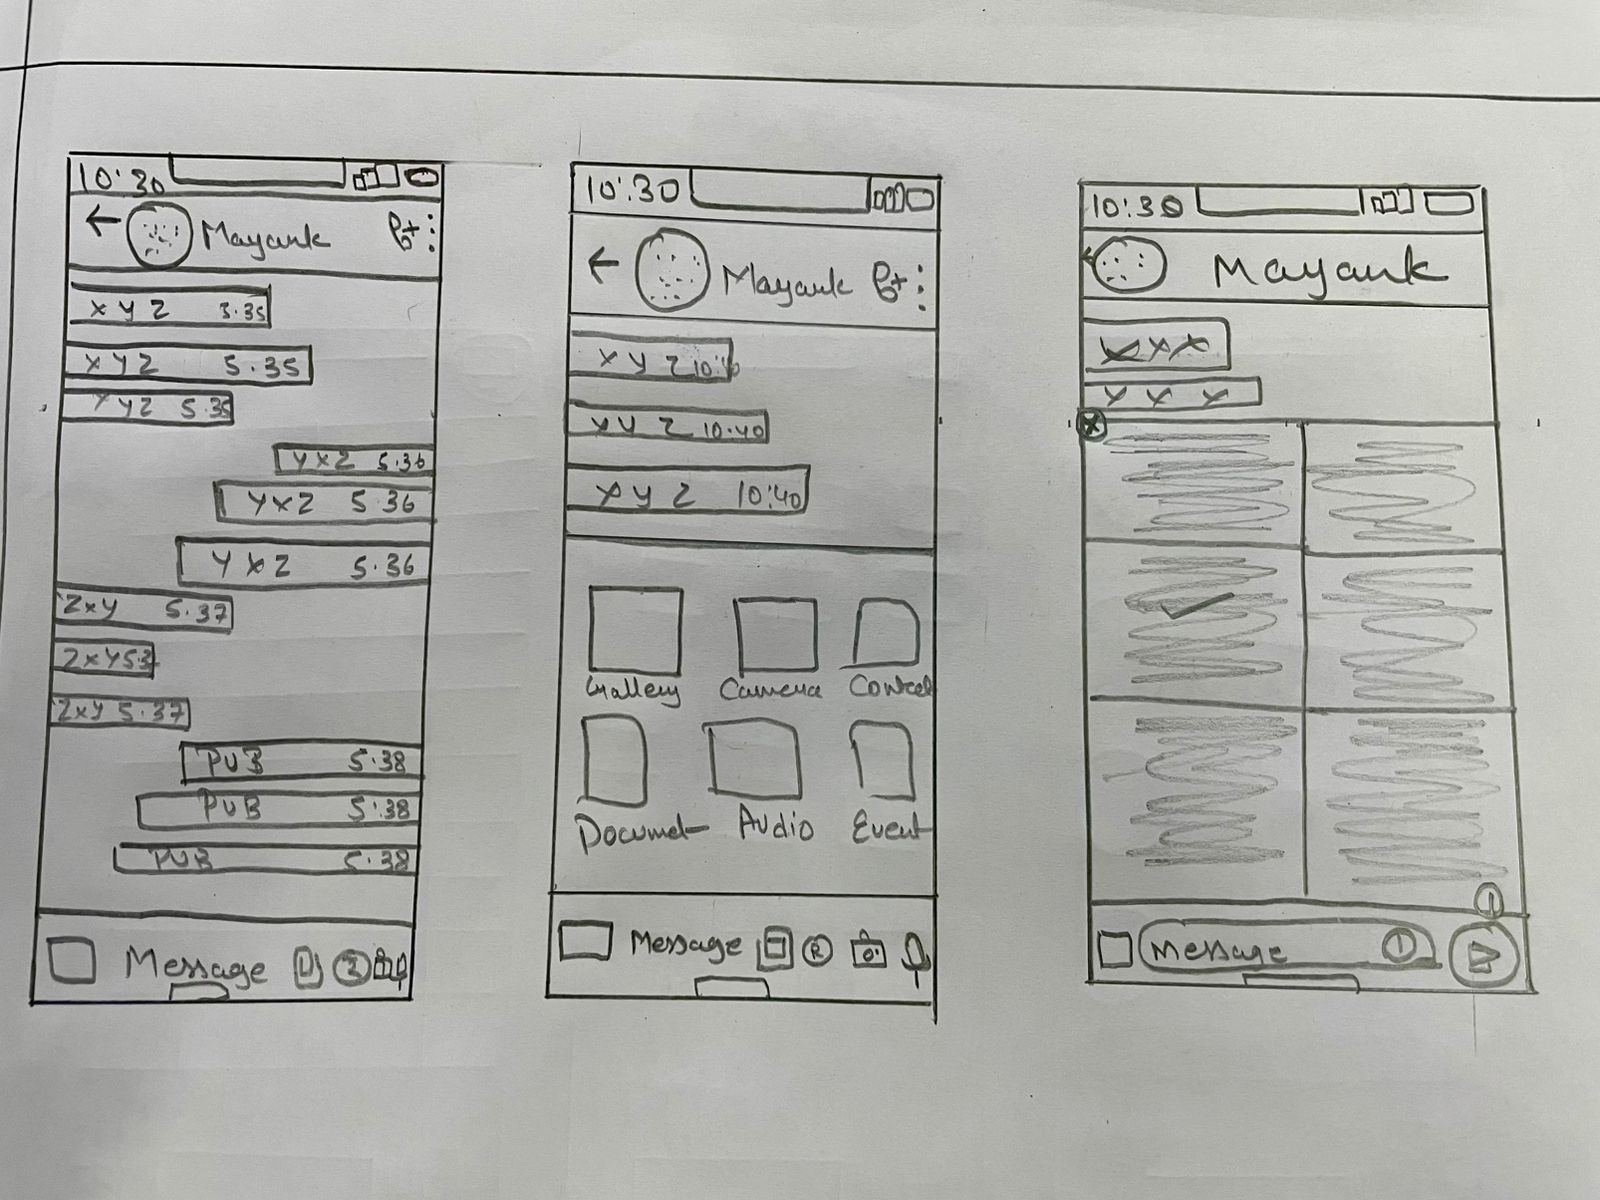 10:30
Mayank
x y z 3.35
x y z 5.35
y y z 5.35
y x z 5.36
y x z 5.36
y x z 5.36
z x y 5.37
z x y 5.3
z x y 5.37
PUB 5.38
PUB 5.38
PUB 5.38
Message
10:30
Mayank
x y z 10:40
x y z 10.40
x y z 10:40
Gallery Camera Contact
Documet Audio Event
Message
10:30
Mayank
x x x
y x y
Message